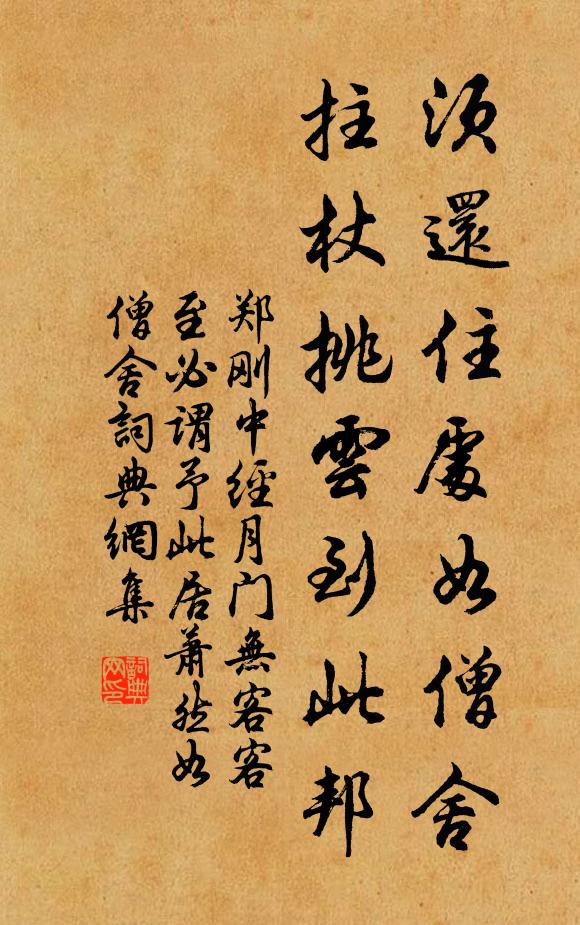 須還住處如僧舍
拄杖挑雲到此邦
郑刚中經月门無客客
至必謂予此居蕭然如
僧舍詞典網集
詞典网印